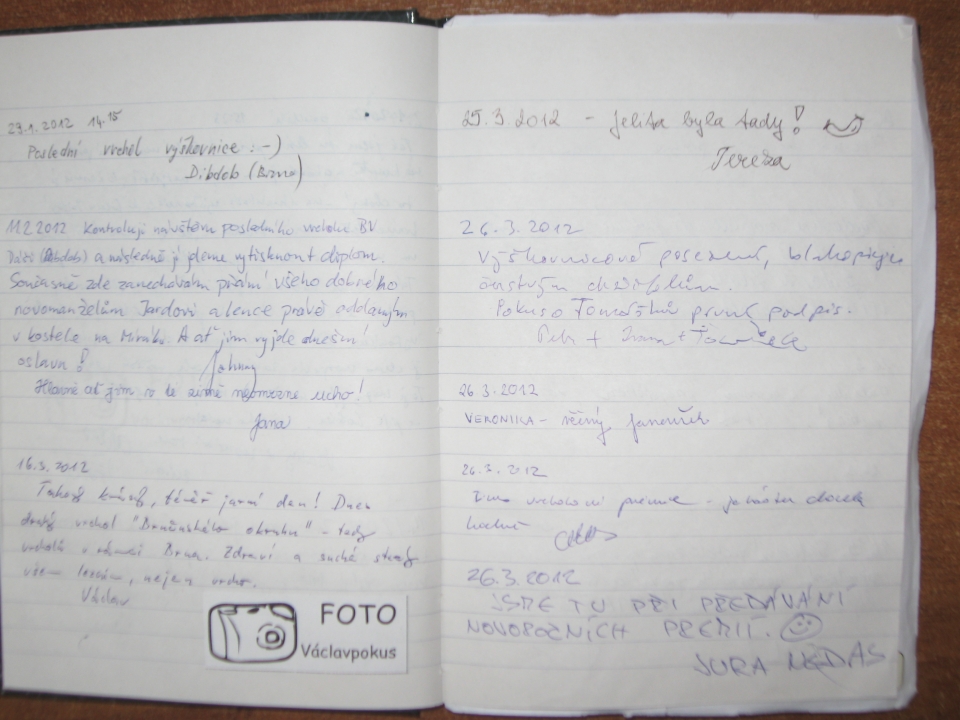 29.1.2012 14.15
Poslední vrchol výškovnice :-)
Dibdeb (Brno)
11.2.2012 Kontroluji návštěvu posledního vrcholu BV
a následně jí jdeme vytisknout diplom.
Současně zde zanechávám přání všeho dobrého
novomanželům Jardovi a Lence právě oddaným
v kostele na Mirníku. A ať jim vyjde dnešní
oslava!
Johnny
Hlavně ať jim to te zimě neomrzne ucho!
Jana
16.3.2012
Takový krásný, téměř jarní den! Dnes
druhý vrchol "Brněnského okruhu" - tedy
vrcholů v rámci Brna. Zdraví a suché stezky
všem lezcům, nejen vrcho.
Václav
FOTO
Václavpokus
25.3.2012 - Jelita byla tady!
Tereza
26.3.2012
Výškovnicové posezení, blahopřejeme
čerstvým držitelům.
Pokus o Tomáškův první podpis.
Petr + Ivana + Tomášek
26.3.2012
VERONIKA - věčný Janoušek
26.3.2012
vrcholové prémie - docela
hodně
26.3.2012
JSME TU PŘI PŘEDÁVÁNÍ
NOVOROČNÍCH PRÉMIÍ.
JURA NEDAS